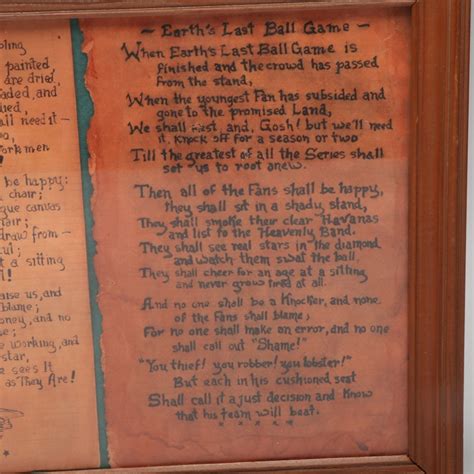 bling
painted,
are dried
faded, and
died,
all need it —
workmen
be happy:
chair;
que canvas
hair;
draw from —
ul;
at a sitting
l!
aise us, and
blame;
oney, and no
e working, and
star,
e sees It
as They Are!
— Earth's Last Ball Game —
When Earth's Last Ball Game is
finished and the crowd has passed
from the stand,
When the youngest Fan has subsided and
gone to the promised Land,
We shall rest, and, Gosh! but we'll need
it, knock off for a season or two
Till the greatest of all the Series shall
set us to root anew.
Then all of the Fans shall be happy,
they shall sit in a shady stand,
They shall smoke their clear Havanas
and list to the Heavenly Band.
They shall see real stars in the diamond
and watch them swat the ball,
They shall cheer for an age at a sitting
and never grow tired at all.
And no one shall be a Knocker, and none
of the Fans shall blame;
For no one shall make an error, and no one
shall call out "Shame!"
"You thief! you robber! you lobster!"
But each in his cushioned seat
Shall call it a just decision and know
that his team will beat.
* * * * *